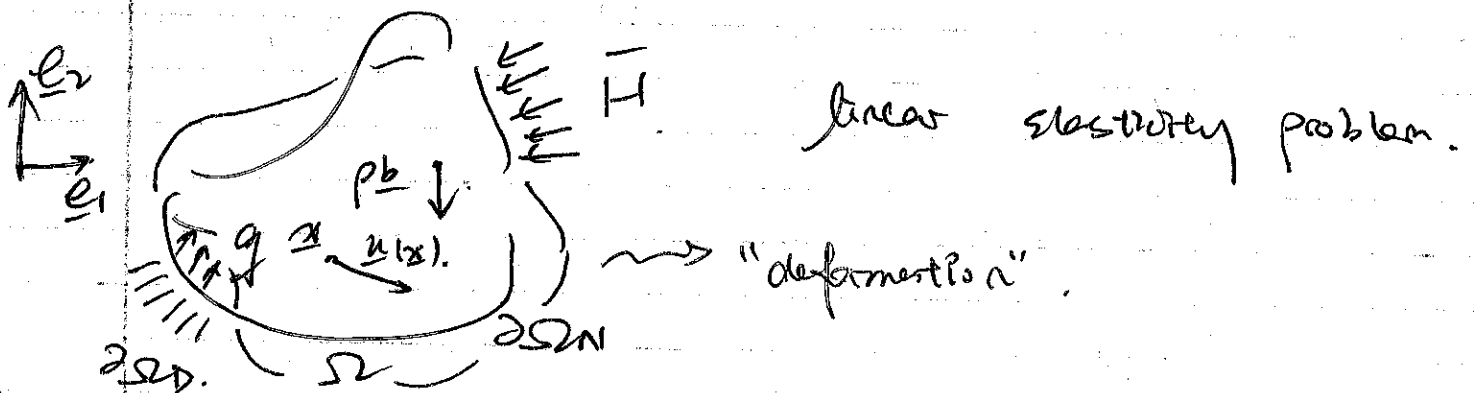 e2
H
linear elasticity problem.
e1
ρb
g x u(x).
"deformation".
∂ΩD.
Ω
∂ΩN